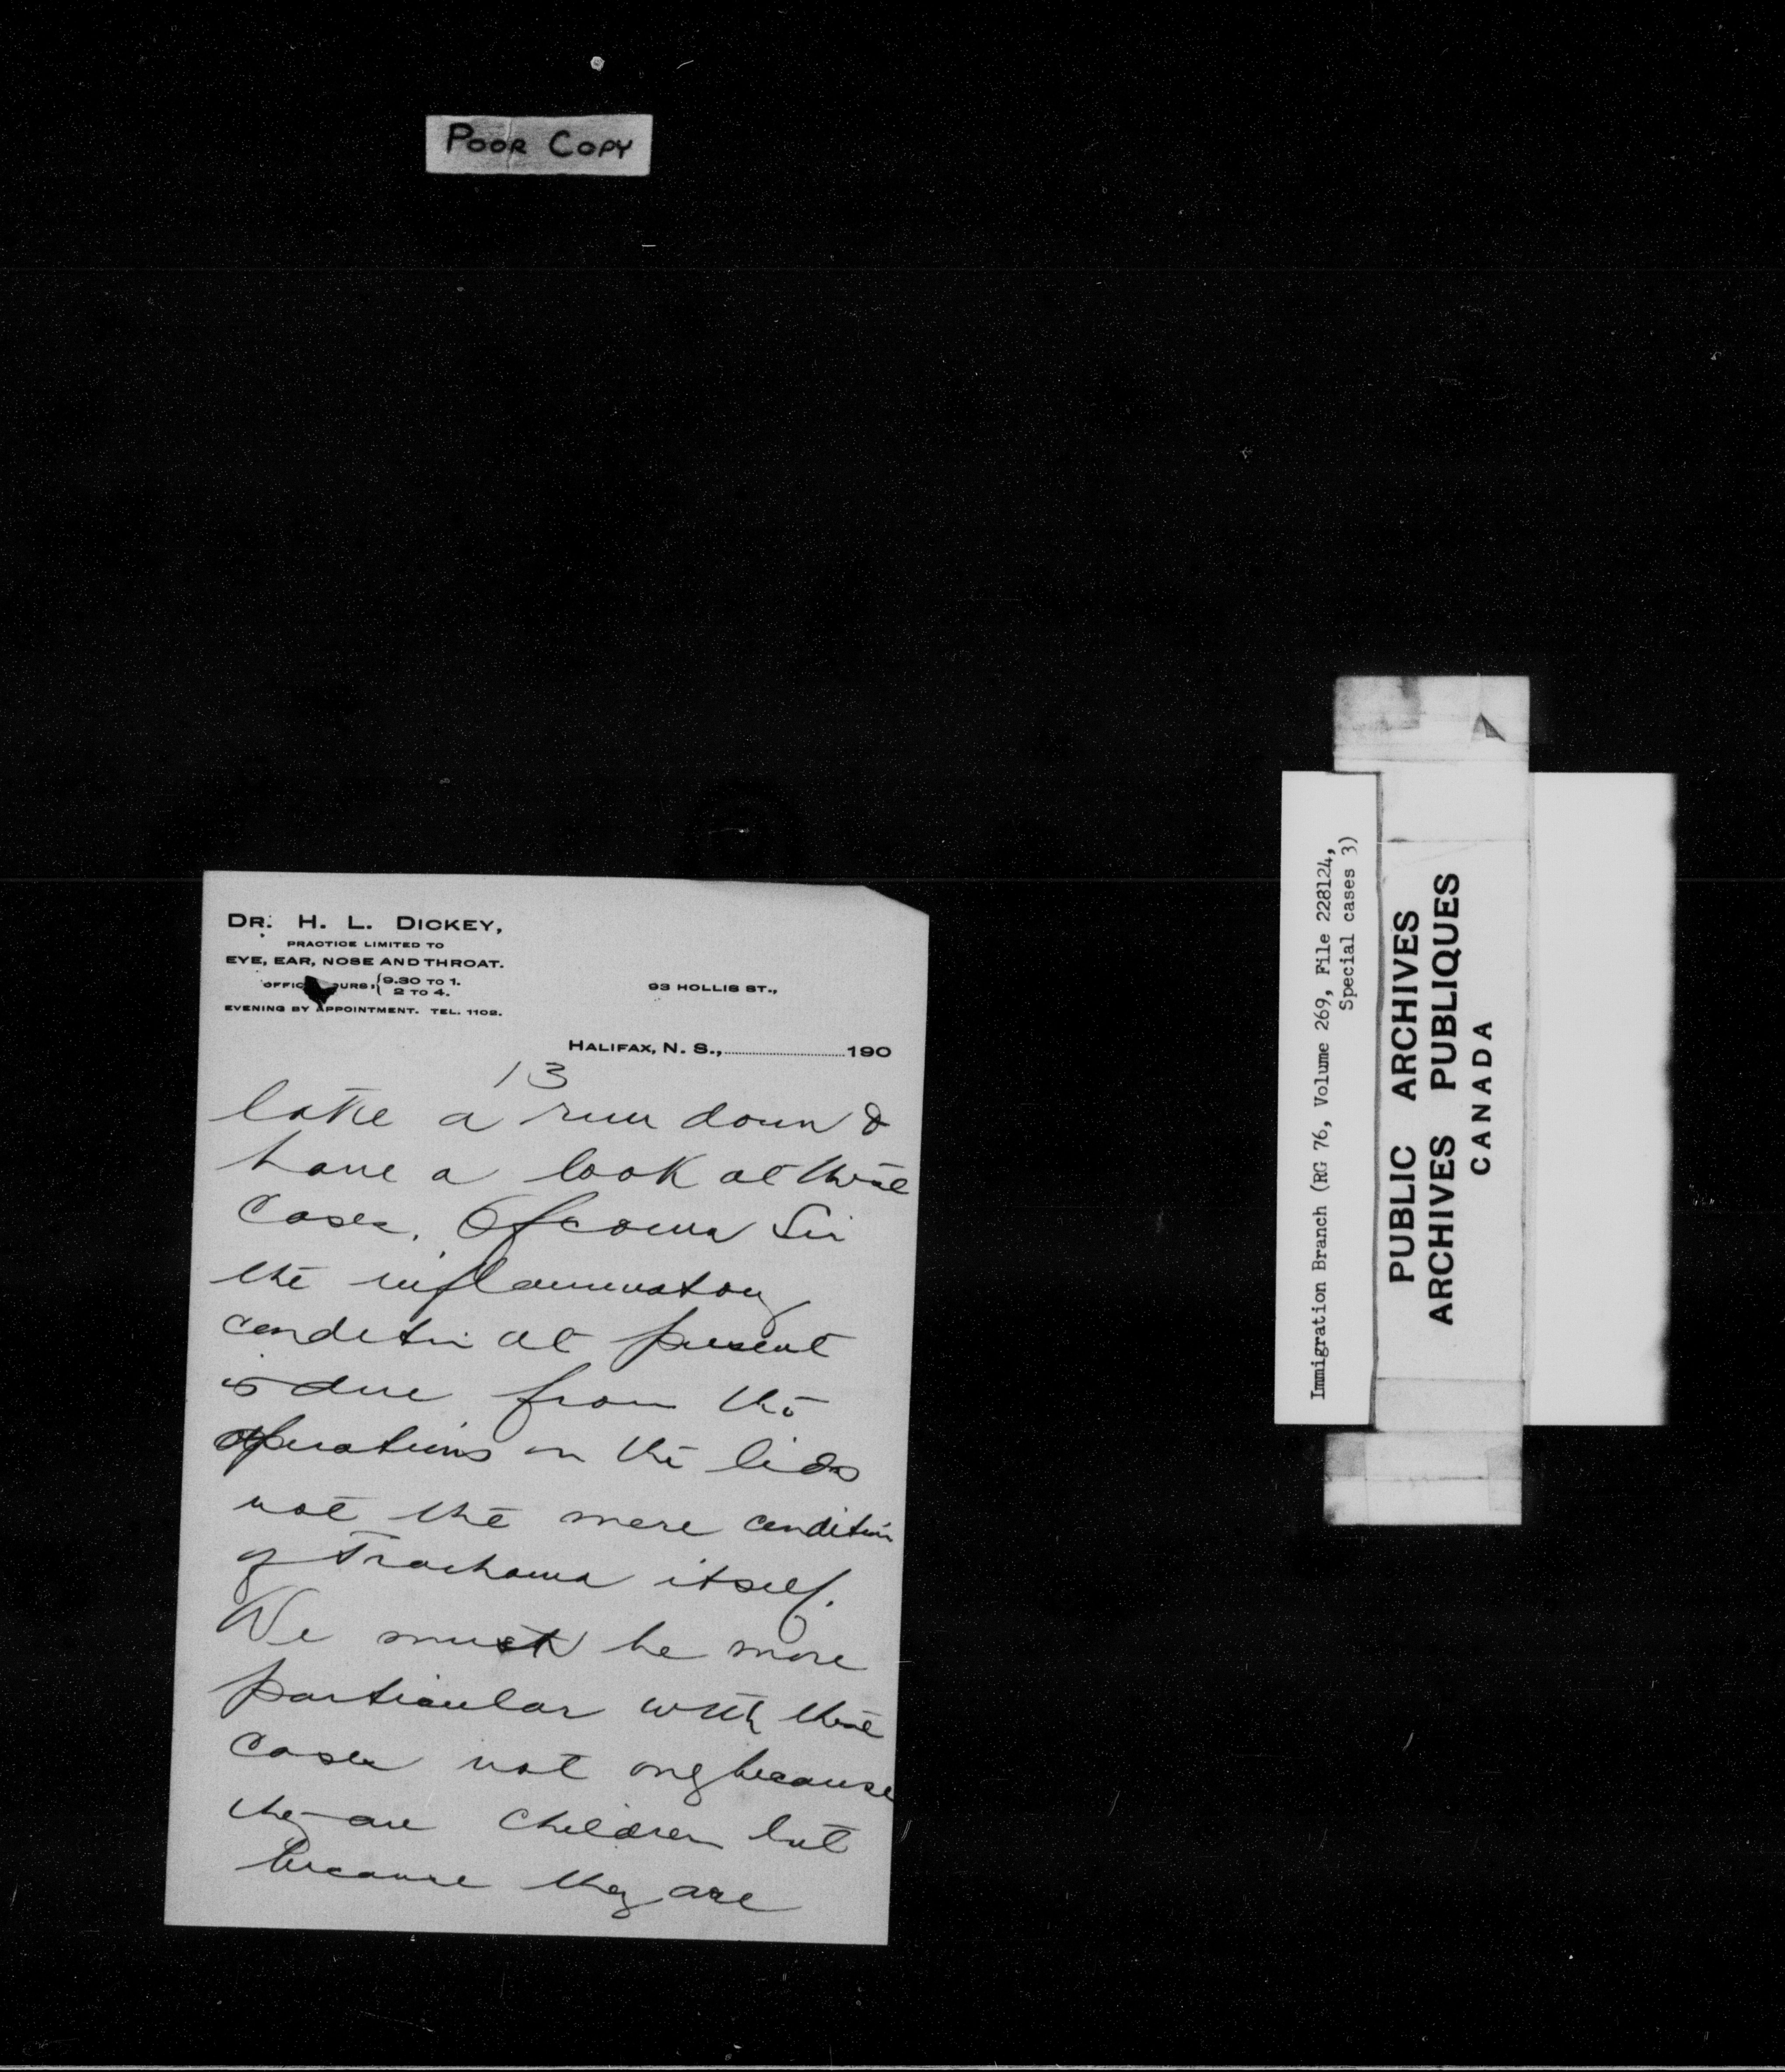 POOR COPY
DR. H. L. DICKEY,
PRACTICE LIMITED TO
EYE, EAR, NOSE AND THROAT.
OFFIC OURS, { 9.30 TO 1.
2 TO 4.
EVENING BY APPOINTMENT. TEL. 1102.
93 HOLLIS ST.,
HALIFAX, N. S., 190
13
take a run down &
have a look at these
cases. Of course Sir
the inflammatory
condition at present
is due from the
operations on the lids
not the mere condition
of Trachoma itself.
We must be more
particular with these
cases not only because
they are children but
because they are
Immigration Branch (RG 76, Volume 269, File 228124,
Special cases 3)
PUBLIC ARCHIVES
ARCHIVES PUBLIQUES
CANADA